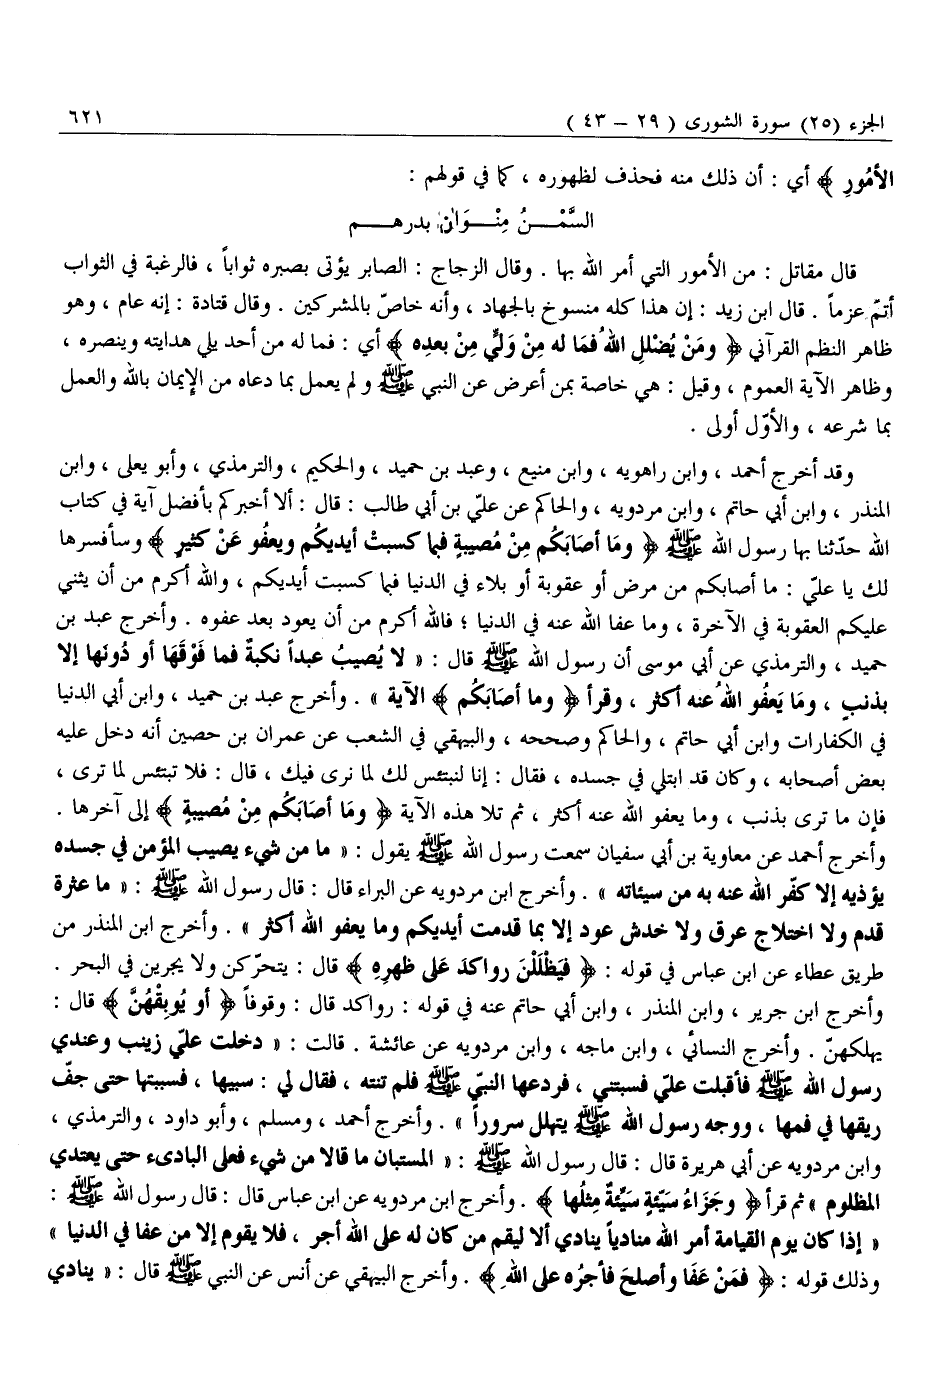 الجزء (٢٥) سورة الشورى ( ٢٩ – ٤٣ ) ٦٢١
الأمُورِ ﴾ أي : أن ذلك منه فحذف لظهوره ، كما في قولهم :
السَّمْنُ مِنْوَانِ بدرهم
قال مقاتل : من الأمور التي أمر الله بها . وقال الزجاج : الصابر يؤتى بصبره ثواباً ، فالرغبة في الثواب
أتمّ عزماً . قال ابن زيد : إن هذا كله منسوخ بالجهاد ، وأنه خاصّ بالمشركين . وقال قتادة : إنه عام ، وهو
ظاهر النظم القرآني ﴿ ومَنْ يُضْللِ اللهُ فمَا له مِنْ وَليٍّ مِنْ بعدِه ﴾ أي : فما له من أحد يلي هدايته وينصره ،
وظاهر الآية العموم ، وقيل : هي خاصة بمن أعرض عن النبي ﷺ ولم يعمل بما دعاه من الإيمان بالله والعمل
بما شرعه ، والأوّل أولى .
وقد أخرج أحمد ، وابن راهويه ، وابن منيع ، وعبد بن حميد ، والحكيم ، والترمذي ، وأبو يعلى ، وابن
المنذر ، وابن أبي حاتم ، وابن مردويه ، والحاكم عن عليّ بن أبي طالب : قال : ألا أخبركم بأفضل آية في كتاب
الله حدّثنا بها رسول الله ﷺ ﴿ ومَا أصَابَكُم مِنْ مُصيبةٍ فبما كسبتْ أيديكُم ويعفُو عَنْ كثيرٍ ﴾ وسأفسرها
لك يا عليّ : ما أصابكم من مرض أو عقوبة أو بلاء في الدنيا فبما كسبت أيديكم ، والله أكرم من أن يثني
عليكم العقوبة في الآخرة ، وما عفا الله عنه في الدنيا ؛ فالله أكرم من أن يعود بعد عفوه . وأخرج عبد بن
حميد ، والترمذي عن أبي موسى أن رسول الله ﷺ قال : « لا يُصيبُ عبداً نكبةٌ فما فَوْقَهَا أو دُونَها إلا
بذنبٍ ، ومَا يَعفُو اللهُ عنه أكثر ، وقرأ ﴿ وما أصَابَكُم ﴾ الآية » . وأخرج عبد بن حميد ، وابن أبي الدنيا
في الكفارات وابن أبي حاتم ، والحاكم وصححه ، والبيهقي في الشعب عن عمران بن حصين أنه دخل عليه
بعض أصحابه ، وكان قد ابتلي في جسده ، فقال : إنا لنبتئس لك لما نرى فيك ، قال : فلا تبتئس لما ترى ،
فإن ما ترى بذنب ، وما يعفو الله عنه أكثر ، ثم تلا هذه الآية ﴿ ومَا أصَابَكُم مِنْ مُصيبةٍ ﴾ إلى آخرها .
وأخرج أحمد عن معاوية بن أبي سفيان سمعت رسول الله ﷺ يقول : « ما من شيء يصيب المؤمن في جسده
يؤذيه إلا كفّر الله عنه به من سيئاته » . وأخرج ابن مردويه عن البراء قال : قال رسول الله ﷺ : « ما عثرة
قدم ولا اختلاج عرق ولا خدش عود إلا بما قدمت أيديكم وما يعفو الله أكثر » . وأخرج ابن المنذر من
طريق عطاء عن ابن عباس في قوله : ﴿ فيَظْلَلْنَ رواكدَ عَلى ظهرِه ﴾ قال : يتحرّكن ولا يجرين في البحر .
وأخرج ابن جرير ، وابن المنذر ، وابن أبي حاتم عنه في قوله : رواكد قال : وقوفاً ﴿ أو يُوبِقْهُنَّ ﴾ قال :
يهلكهنّ . وأخرج النسائي ، وابن ماجه ، وابن مردويه عن عائشة . قالت : « دخلت عليّ زينب وعندي
رسول الله ﷺ فأقبلت عليّ فسبتني ، فردعها النبيّ ﷺ فلم تنته ، فقال لي : سبيها ، فسببتها حتى جفّ
ريقها في فمها ، ووجه رسول الله ﷺ يتهلل سروراً » . وأخرج أحمد ، ومسلم ، وأبو داود ، والترمذي ،
وابن مردويه عن أبي هريرة قال : قال رسول الله ﷺ : « المستبان ما قالا من شيء فعلى البادىء حتى يعتدي
المظلوم » ثم قرأ ﴿ وجَزَاءُ سَيّئةٍ سَيّئةٌ مثلُها ﴾ . وأخرج ابن مردويه عن ابن عباس قال : قال رسول الله ﷺ :
« إذا كان يوم القيامة أمر الله منادياً ينادي ألا ليقم من كان له على الله أجر ، فلا يقوم إلا من عفا في الدنيا »
وذلك قوله : ﴿ فمَنْ عَفَا وأصلحَ فأجرُه على اللهِ ﴾ . وأخرج البيهقي عن أنس عن النبي ﷺ قال : « ينادي